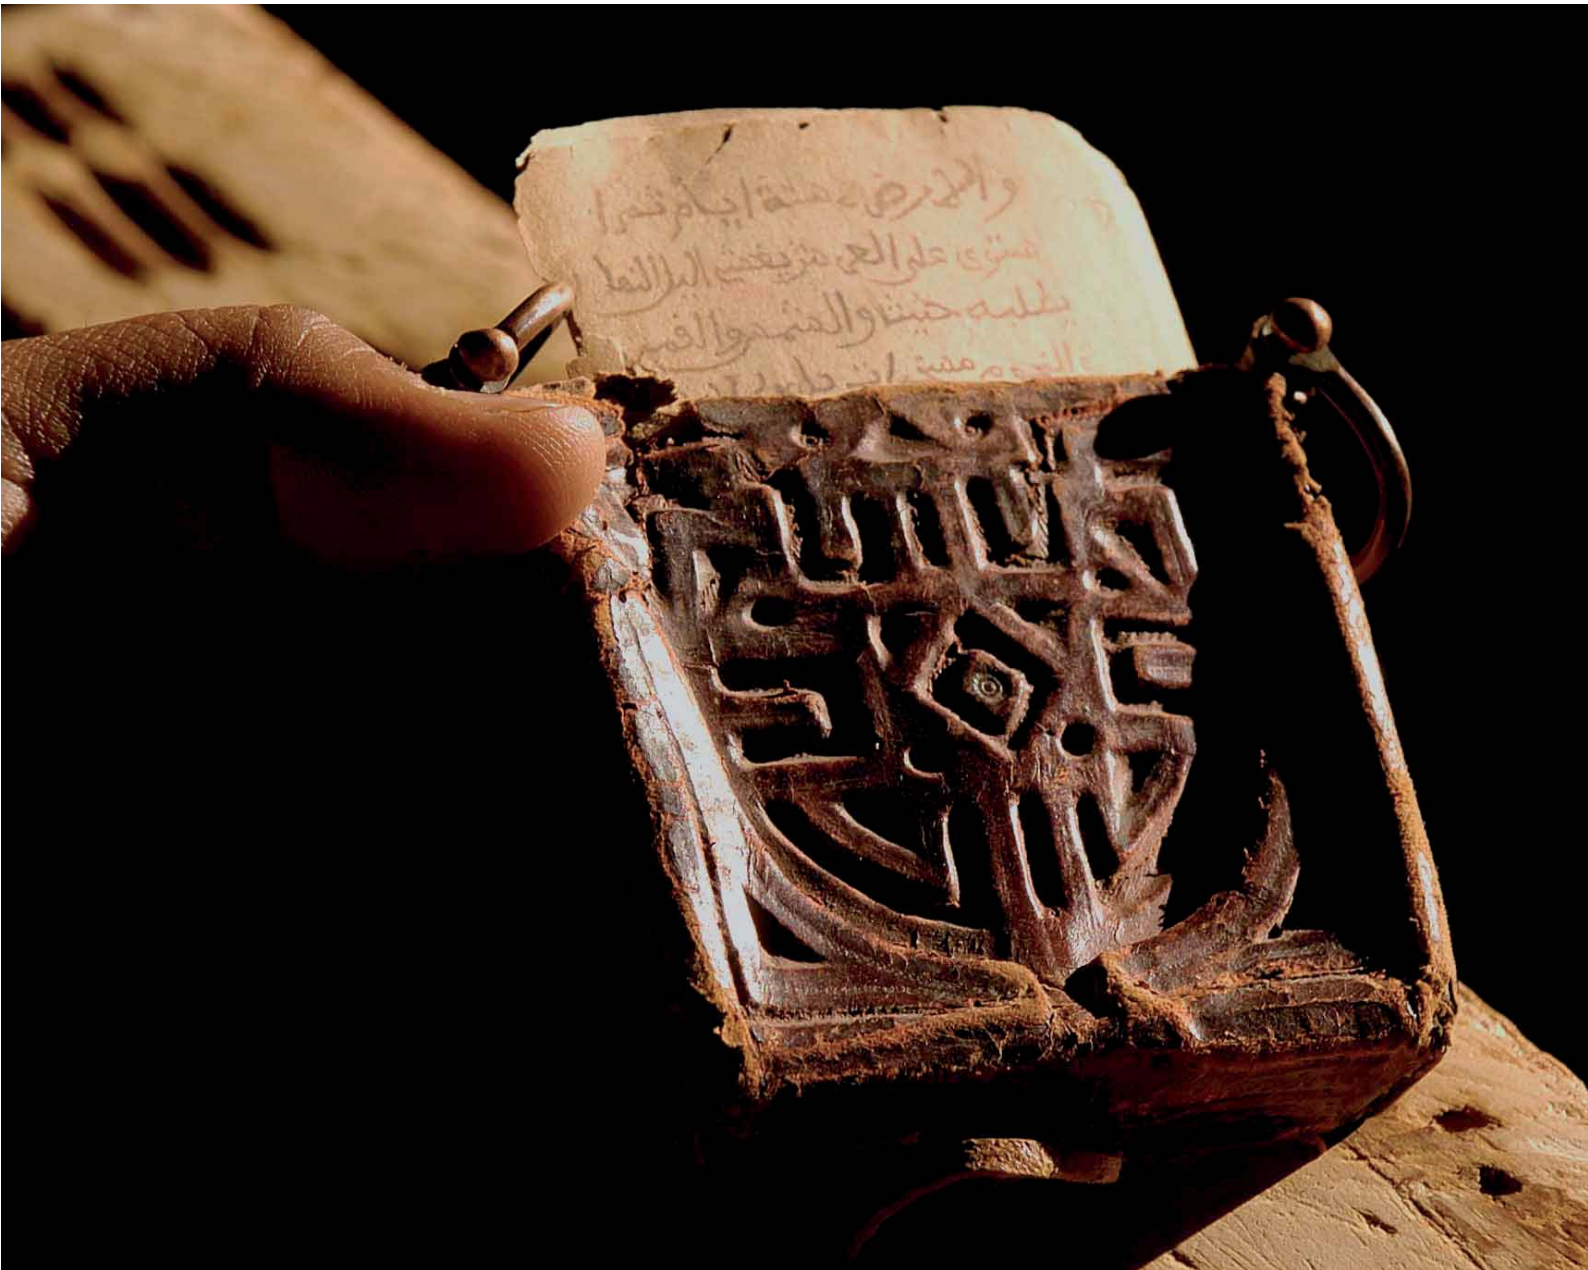 والارض في ستة ايام ثم ا
ستوى على العرش يغشى اليل النها
يطلبه حثيثا والشمس والقمر
والنجوم